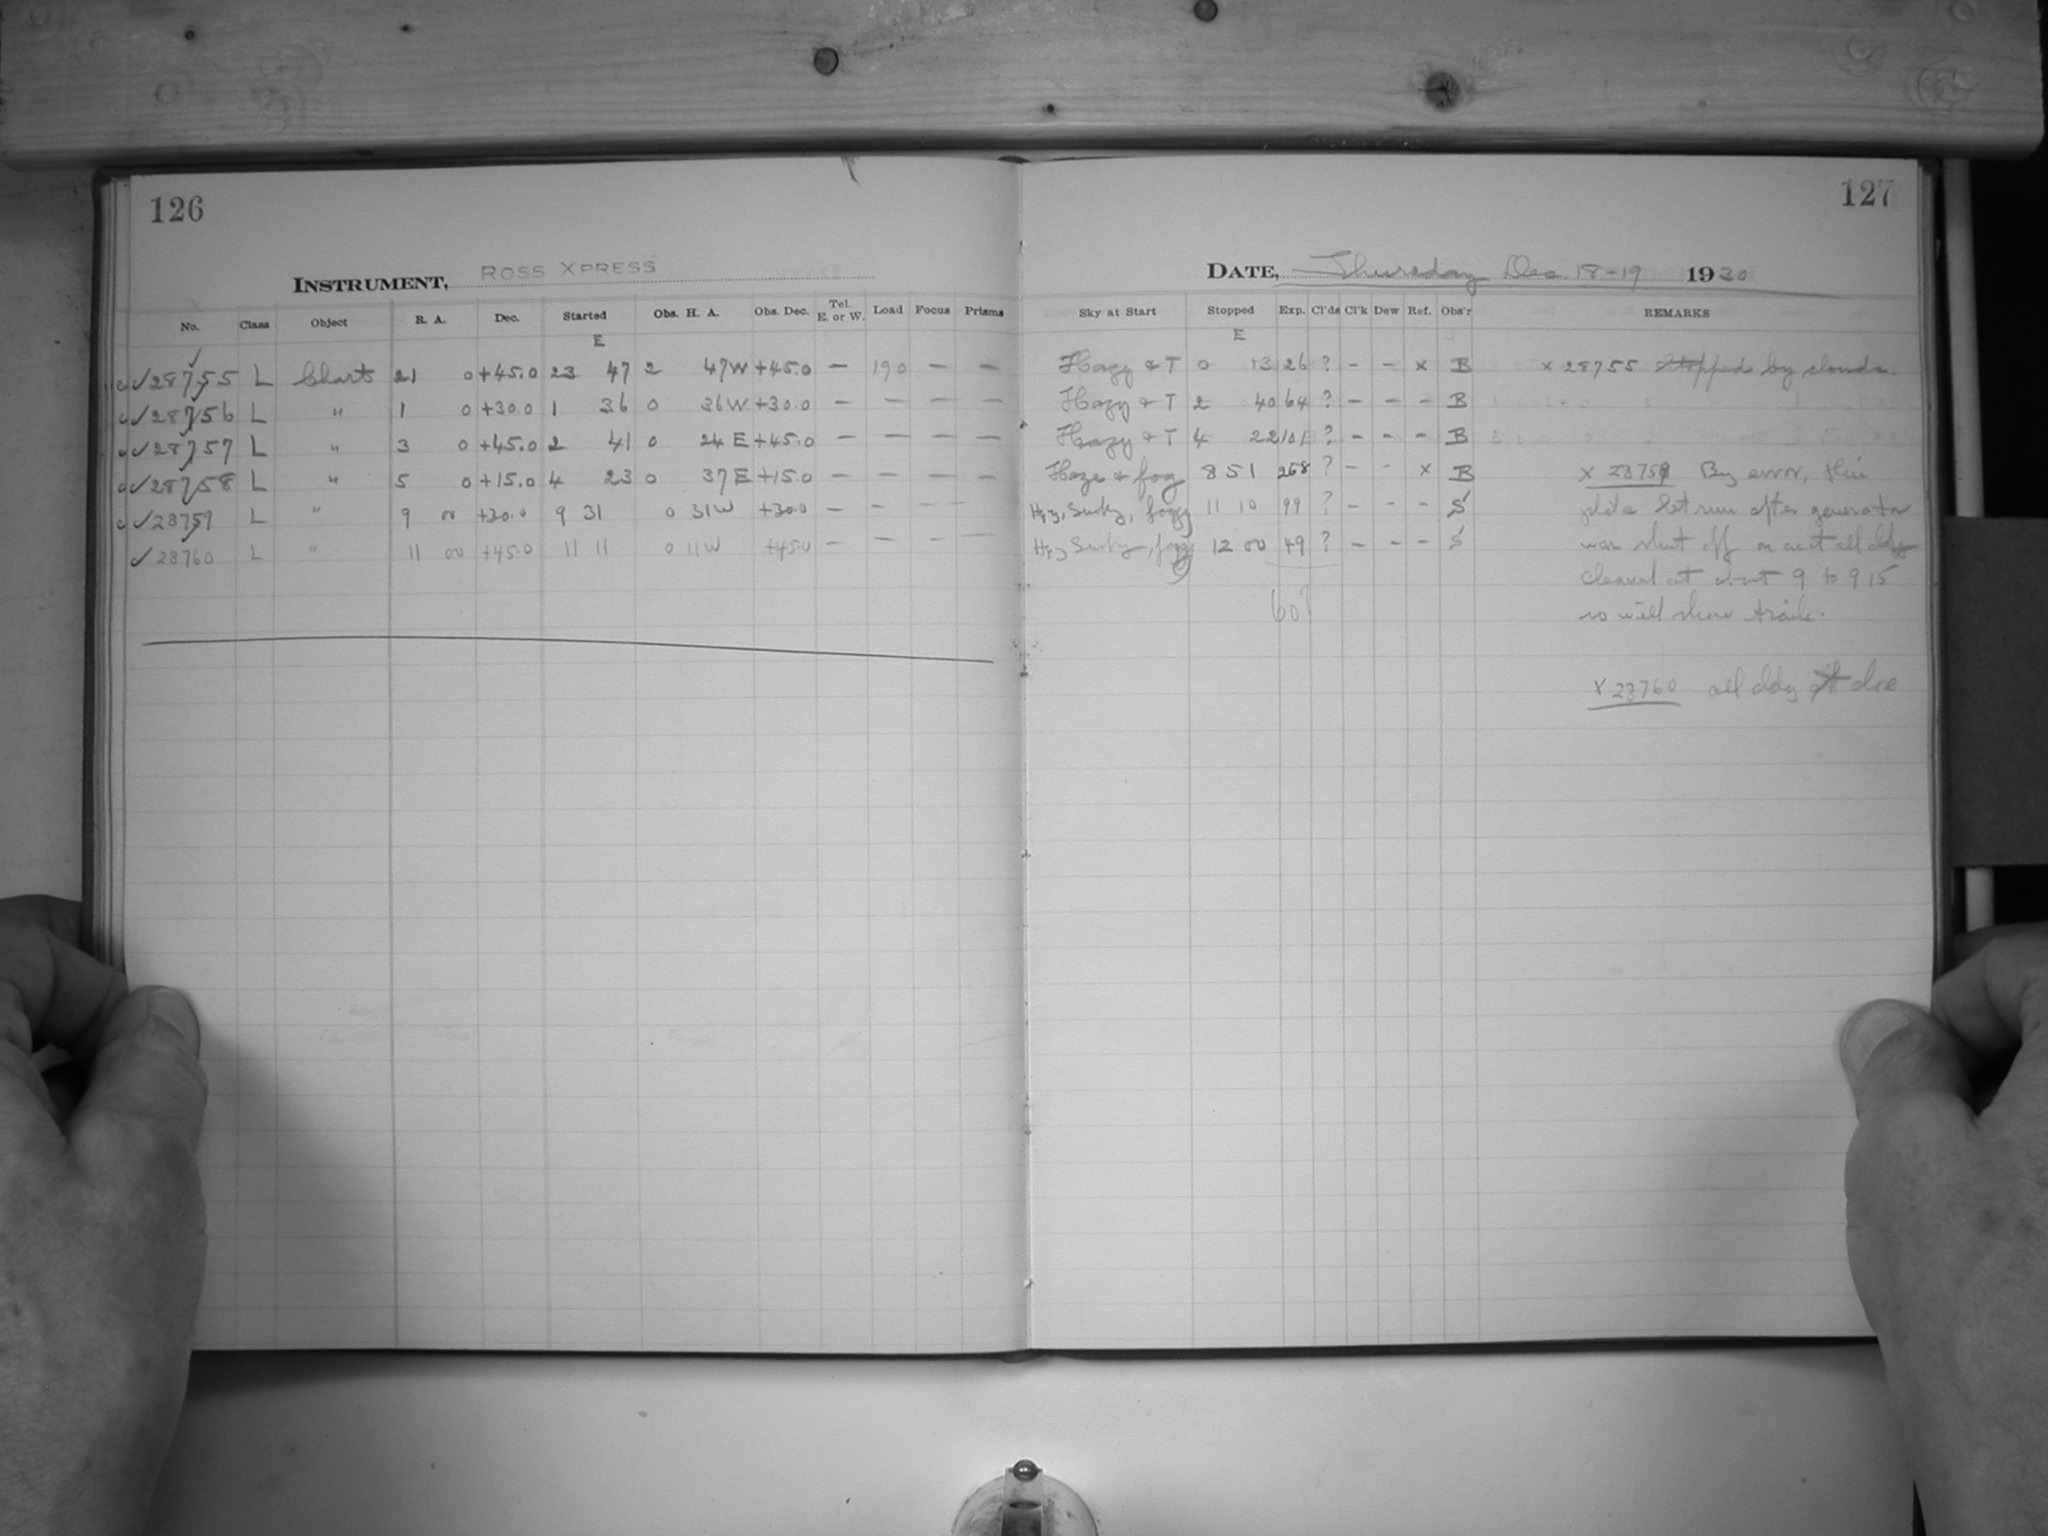 126
INSTRUMENT, ROSS XPRESS
No. Class Object R. A. Dec. Started Obs. H. A. Obs. Dec. Tel. E. or W. Load Focus Prisms
E
✓28755 L Chart 21 0 +45.0 23 47 2 47W +45.0 — 190 — —
✓28756 L " 1 0 +30.0 1 36 0 36W +30.0 — — — —
✓28757 L " 3 0 +45.0 2 41 0 24 E +45.0 — — — —
✓28758 L " 5 0 +15.0 4 23 0 37E +15.0 — — — —
✓28759 L " 9 00 +30.0 9 31 0 31W +30.0 — — — —
✓28760 L " 11 00 +45.0 11 11 0 11W +45.0 — — — —
127
DATE, Thursday Dec. 18-19 1930
Sky at Start Stopped Exp. Cl'ds Cl'k Dew Ref. Obs'r REMARKS
E
Hazy & T 0 13 26 ? - - x B x 28755 Stopped by clouds.
Hazy & T 2 40 64 ? - - - B
Hazy & T 4 22 101 ? - - - B
Haze & fog 8 51 268 ? - - x B x 28758 By error, this
Hzy, Smky, foggy 11 10 99 ? - - - S plate let run after generator
Hzy Smky, fogg 12 00 49 ? - - - S was shut off on acct all cldy
cleared at about 9 to 9 15
607
so will show trails.
x 28760 all cldy